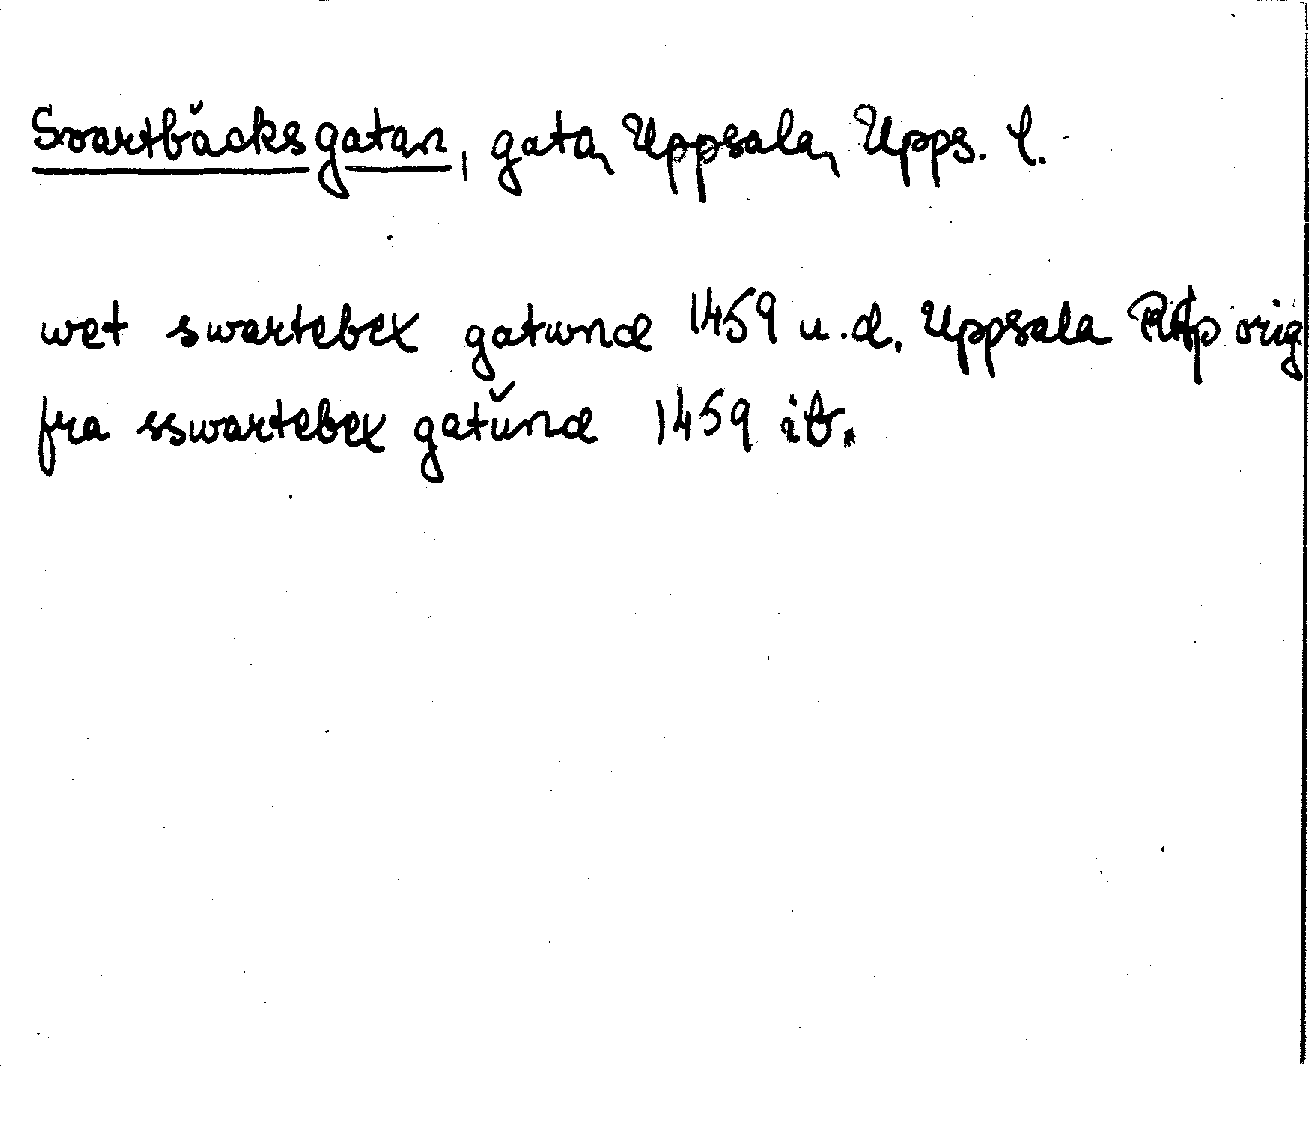 Svartbäcksgatan, gata, Uppsala, Upps. l.
wet swartebex gatwnæ 1459 u.d. Uppsala RAp orig
fra sswartebex gatŭnæ 1459 ib.